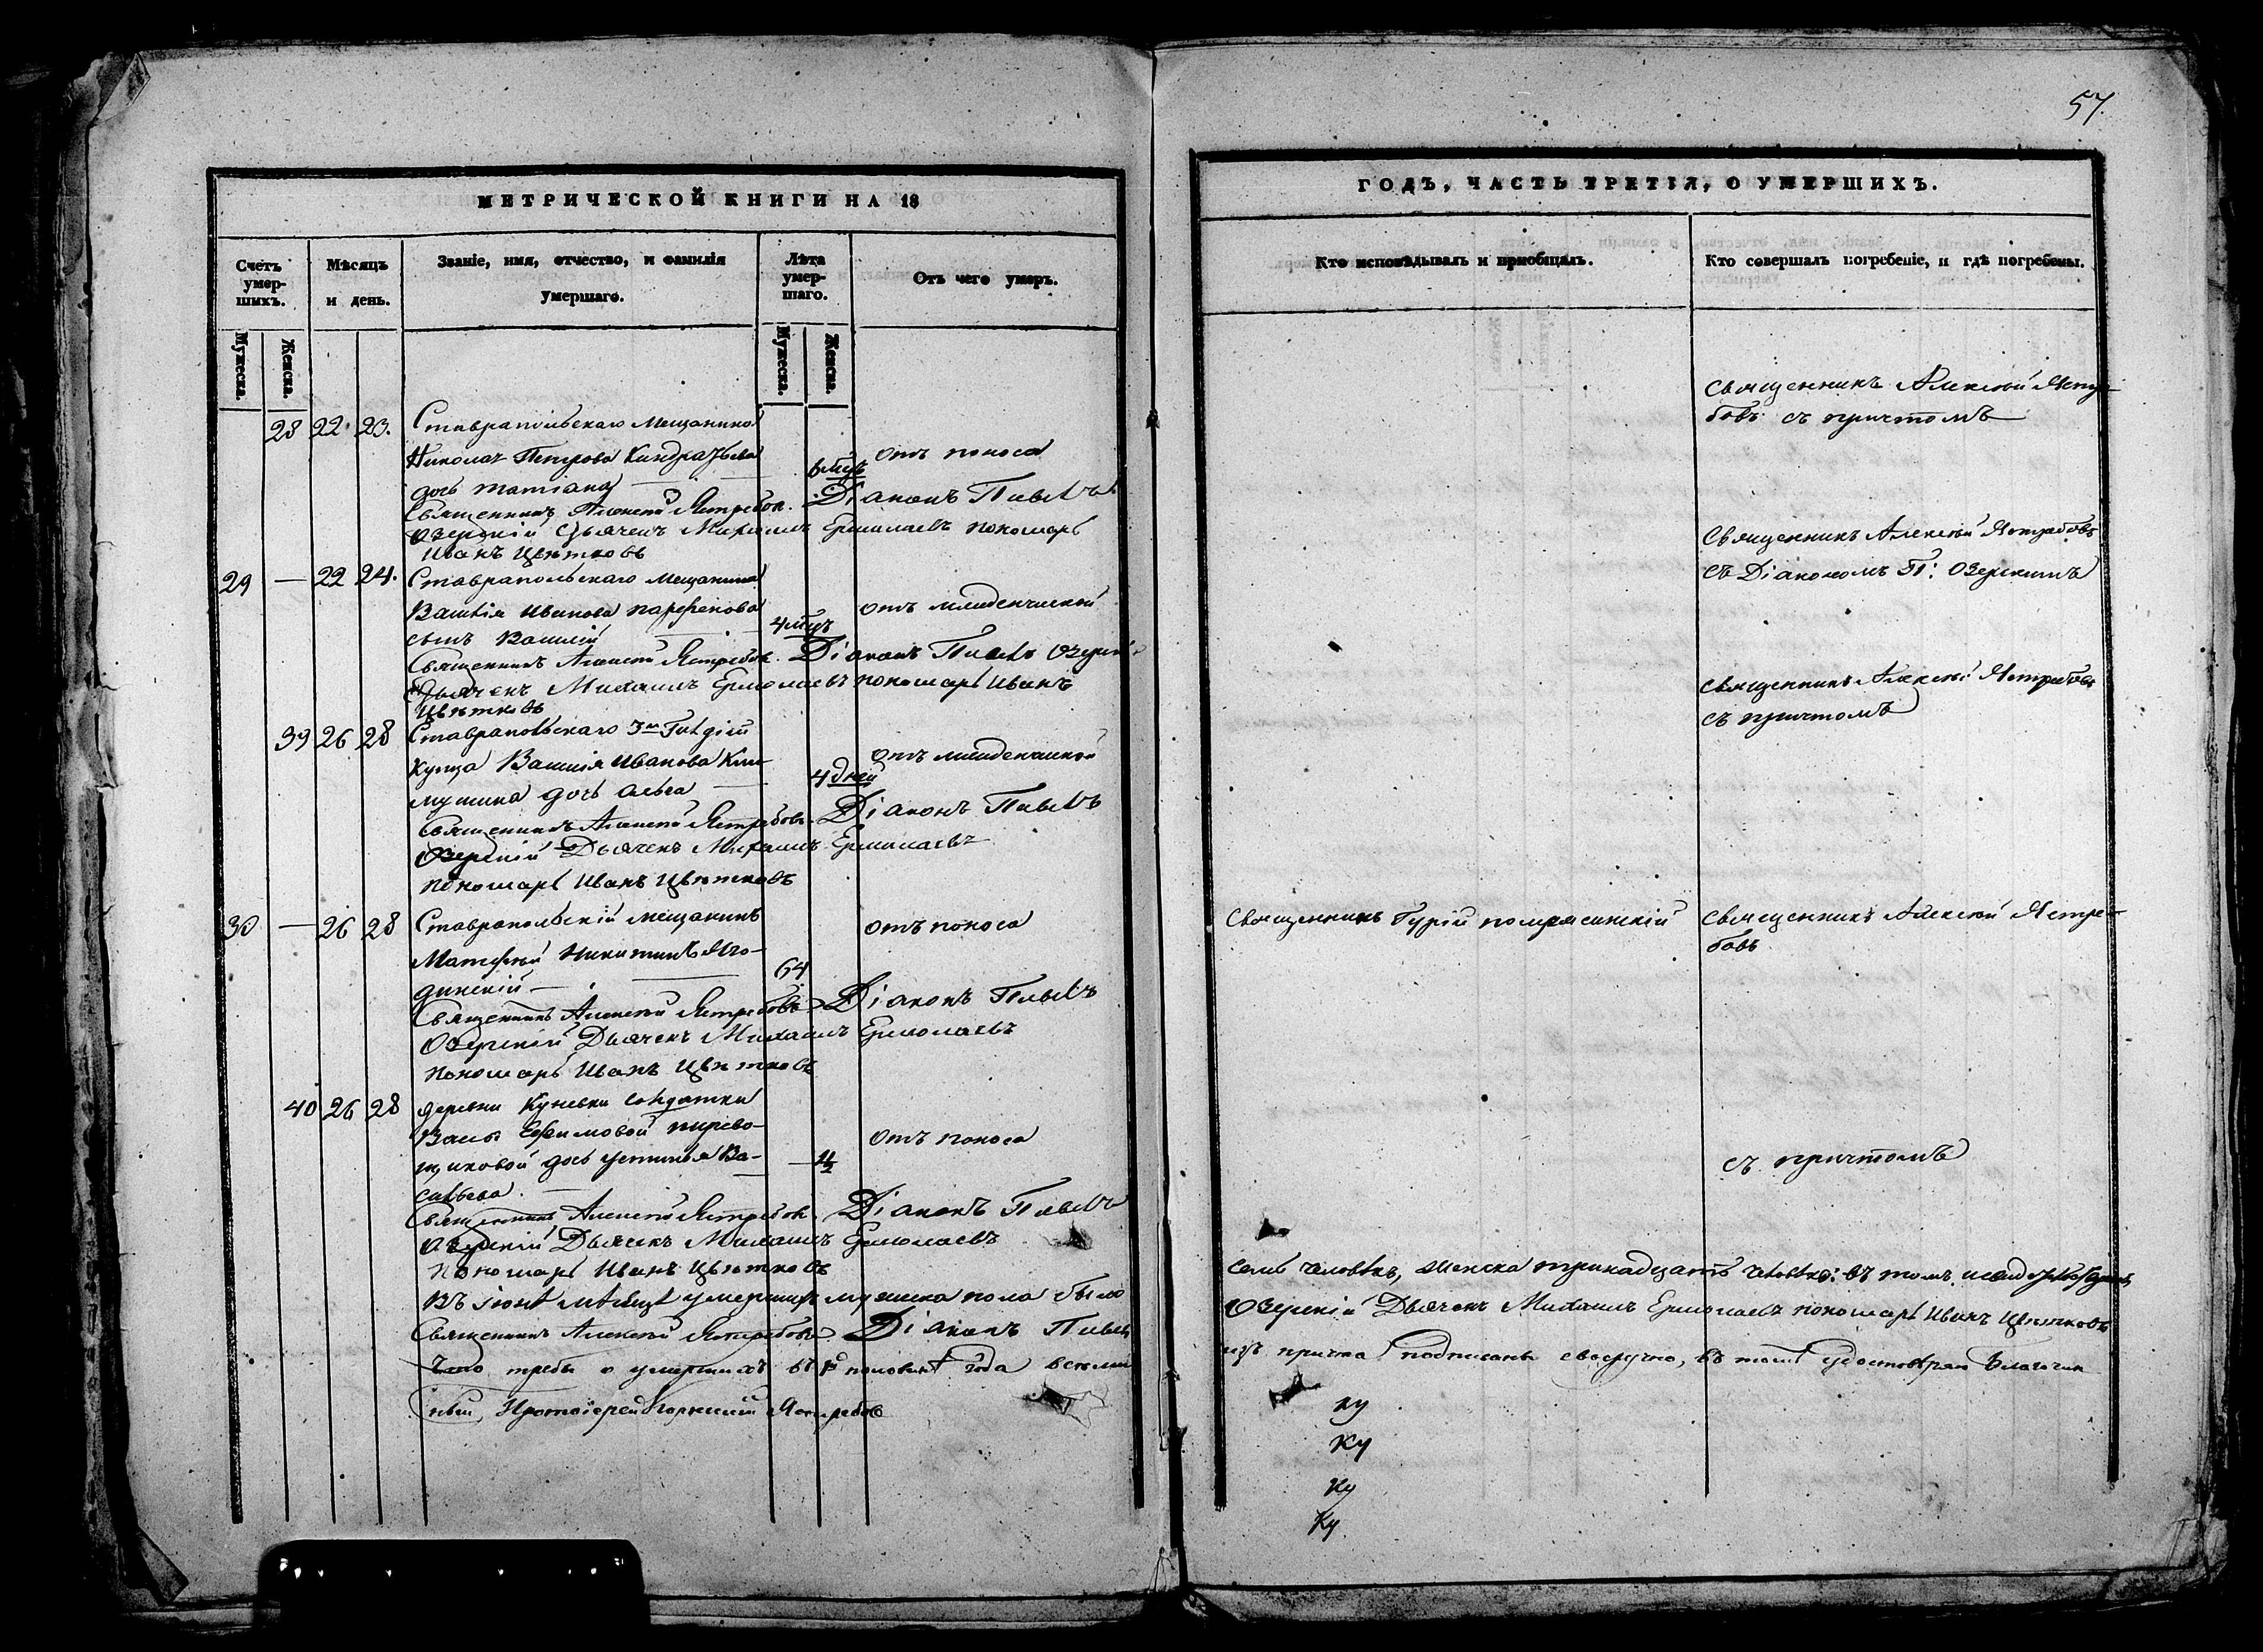 57.
МЕТРИЧЕСКОЙ КНИГИ НА 18
Счетъ умер- шихъ.
Мѣсяцъ и день.
Званіе, имя, отчество, и фамилія умершаго.
Лѣта умер- шаго.
Отъ чего умеръ.
Мужеска.
Женска.
Мужеска.
Женска.
28 22 23. Ставропольскаго мещанина
Николая Петрова Кандратьева отъ поноса
дочь татіана 6 мцъ
Священникъ Алексѣй Ястребов. Діаконъ Павелъ
Озерскій Дьячекъ Михаилъ Ермолаевъ пономарь
Иванъ Цвѣтковъ
29 — 22 24. Ставропольскаго мещанина
Василія Иванова парфенова отъ младенческой
сынъ Василій 4 мцъ
Священникъ Алексѣй Ястребов. Діаконъ Павелъ Озерскі
Дьячекъ Михаилъ Ермолаевъ пономарь Иванъ
Цвѣтковъ
39 26 28 Ставропольскаго 3й Гилдіи
купца Василія Иванова Кли- отъ младенческой
мушина дочь Ольга 4 дней
Священникъ Алексѣй Ястребовъ Діаконъ Павелъ
Озерскій Дьячекъ Михаилъ Ермолаевъ
пономарь Иванъ Цвѣтковъ
30 — 26 28 Ставропольскій мещанинъ отъ поноса
Матфѣй Никитинъ Яго-
динскій 64
Священникъ Алексѣй Ястребовъ Діаконъ Павелъ
Озерскій Дьячекъ Михаилъ Ермолаевъ
пономарь Иванъ Цвѣтковъ
40 26 28 деревни Кунеевки солдатки
Ефимовой перево- отъ поноса
щиковой дочь устинья Ва-
сильева.
Священникъ Алексѣй Ястребов. Діаконъ Павелъ
Озерскій Дьячекъ Михаилъ Ермолаевъ
пономарь Иванъ Цвѣтковъ
Въ іюнѣ мѣсяцѣ умершихъ мужеска пола было
Священникъ Алексѣй Ястребовъ Діаконъ Павелъ
Что требы о умершихъ въ половинѣ года всѣми
ный, Протоіерей Ястребовъ
ГОДЪ, ЧАСТЬ ТРЕТІЯ, О УМЕРШИХЪ.
Кто исповѣдывалъ и приобщалъ.
Кто совершалъ погребеніе, и гдѣ погребены.
Священникъ Алексѣй Ястре-
бовъ съ причтомъ
Священникъ Алексѣй Ястребовъ
съ Діакономъ П: Озерскимъ
Священникъ Алексѣй Ястребовъ
съ причтомъ
Священникъ Гурій
Священникъ Алексѣй Ястре-
бовъ
съ причтомъ
семь человѣкъ, женска тринадцать человѣкъ: въ томъ
Озерскій Дьячекъ Михаилъ Ермолаевъ пономарь Иванъ Цвѣтковъ
изъ причта подписаны своеручно, въ томъ удостовѣряю Благочин
ку
Ку
Ку
Ку